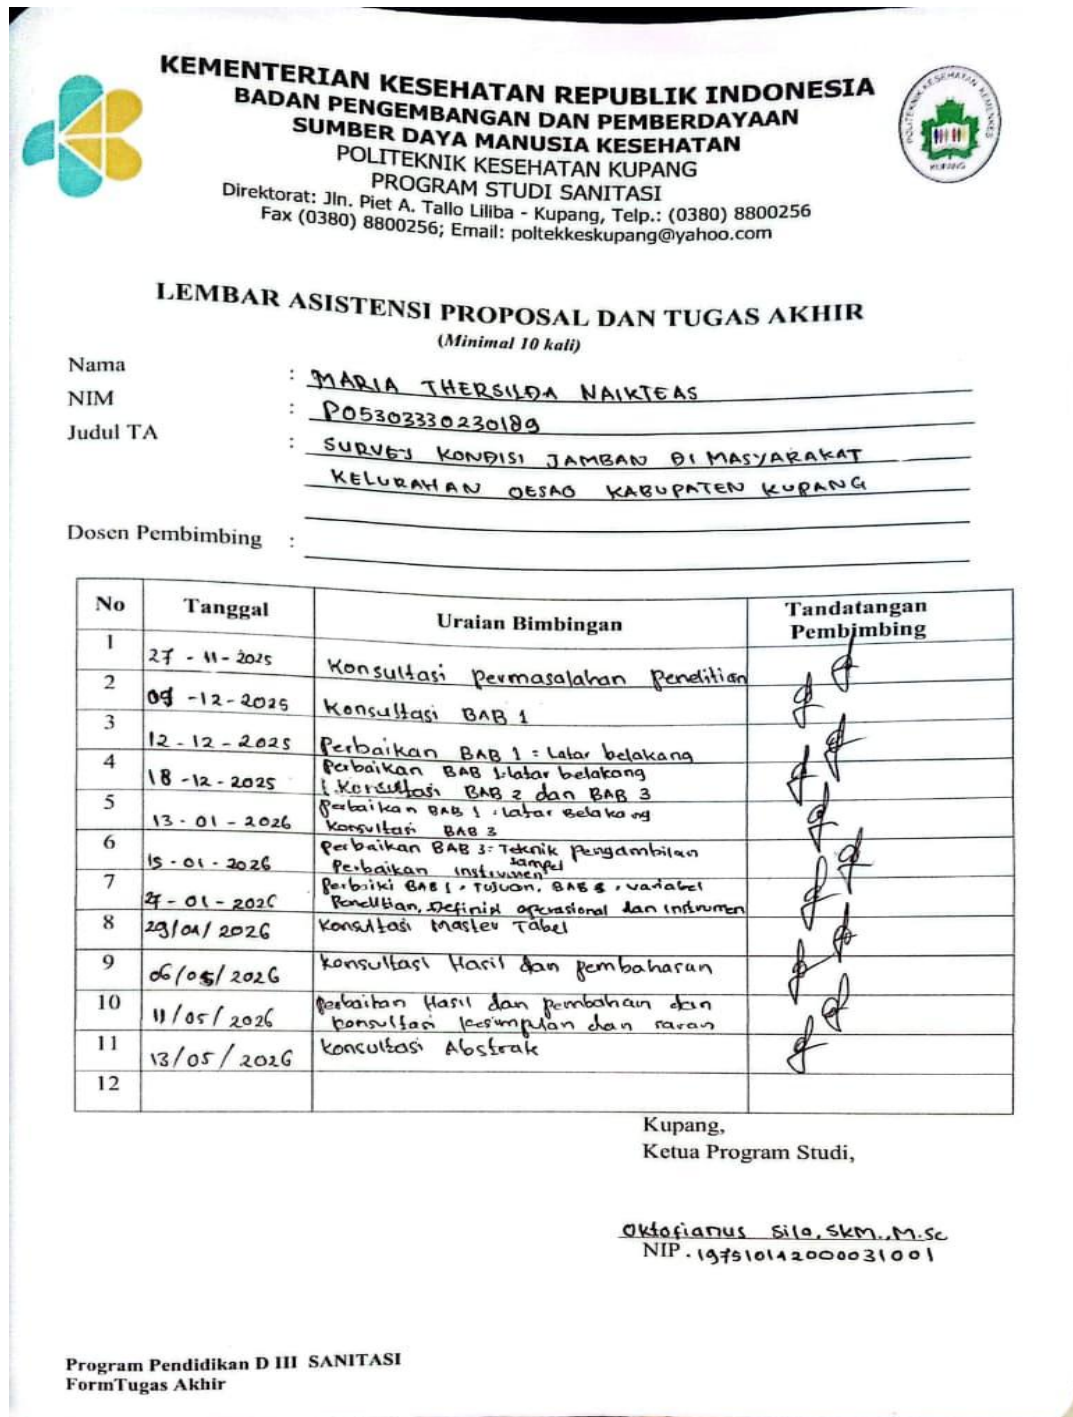 KEMENTERIAN KESEHATAN REPUBLIK INDONESIA
BADAN PENGEMBANGAN DAN PEMBERDAYAAN
SUMBER DAYA MANUSIA KESEHATAN
POLITEKNIK KESEHATAN KUPANG
PROGRAM STUDI SANITASI
Direktorat: Jln. Piet A. Tallo Liliba - Kupang, Telp.: (0380) 8800256
Fax (0380) 8800256; Email: poltekkeskupang@yahoo.com
POLITEKNIK KESEHATAN KEMENKES
KUPANG
LEMBAR ASISTENSI PROPOSAL DAN TUGAS AKHIR
(Minimal 10 kali)
Nama : MARIA THERSILDA NAIKTEAS
NIM : PO5303330230189
Judul TA : SURVEJ KONDISI JAMBAN DI MASYARAKAT
KELURAHAN OESAO KABUPATEN KUPANG
Dosen Pembimbing :
No Tanggal Uraian Bimbingan Tandatangan Pembimbing
1 27 - 11 - 2025 Konsultasi permasalahan Penelitian
2 09 - 12 - 2025 Konsultasi BAB 1
3 12 - 12 - 2025 Perbaikan BAB 1 : Latar belakang
4 18 - 12 - 2025 Perbaikan BAB 1 : latar belakang
Konsultasi BAB 2 dan BAB 3
5 13 - 01 - 2026 Perbaikan BAB 1 : Latar Belakang
Konsultasi BAB 3
6 15 - 01 - 2026 Perbaikan BAB 3 : Teknik Pengambilan sampel
Perbaikan instrumen
7 27 - 01 - 2026 Perbaiki BAB 1 : Tujuan, BAB : variabel
Penelitian, Definisi operasional dan instrumen
8 29/01/2026 Konsultasi Master Tabel
9 06/05/2026 Konsultasi Hasil dan pembahasan
10 11/05/2026 perbaikan Hasil dan pembahan dan
konsultasi kesimpulan dan saran
11 13/05/2026 Konsultasi Abstrak
12
Kupang,
Ketua Program Studi,
Oktofianus Sila, SKM., M.Sc
NIP. 197510142000031001
Program Pendidikan D III SANITASI
FormTugas Akhir